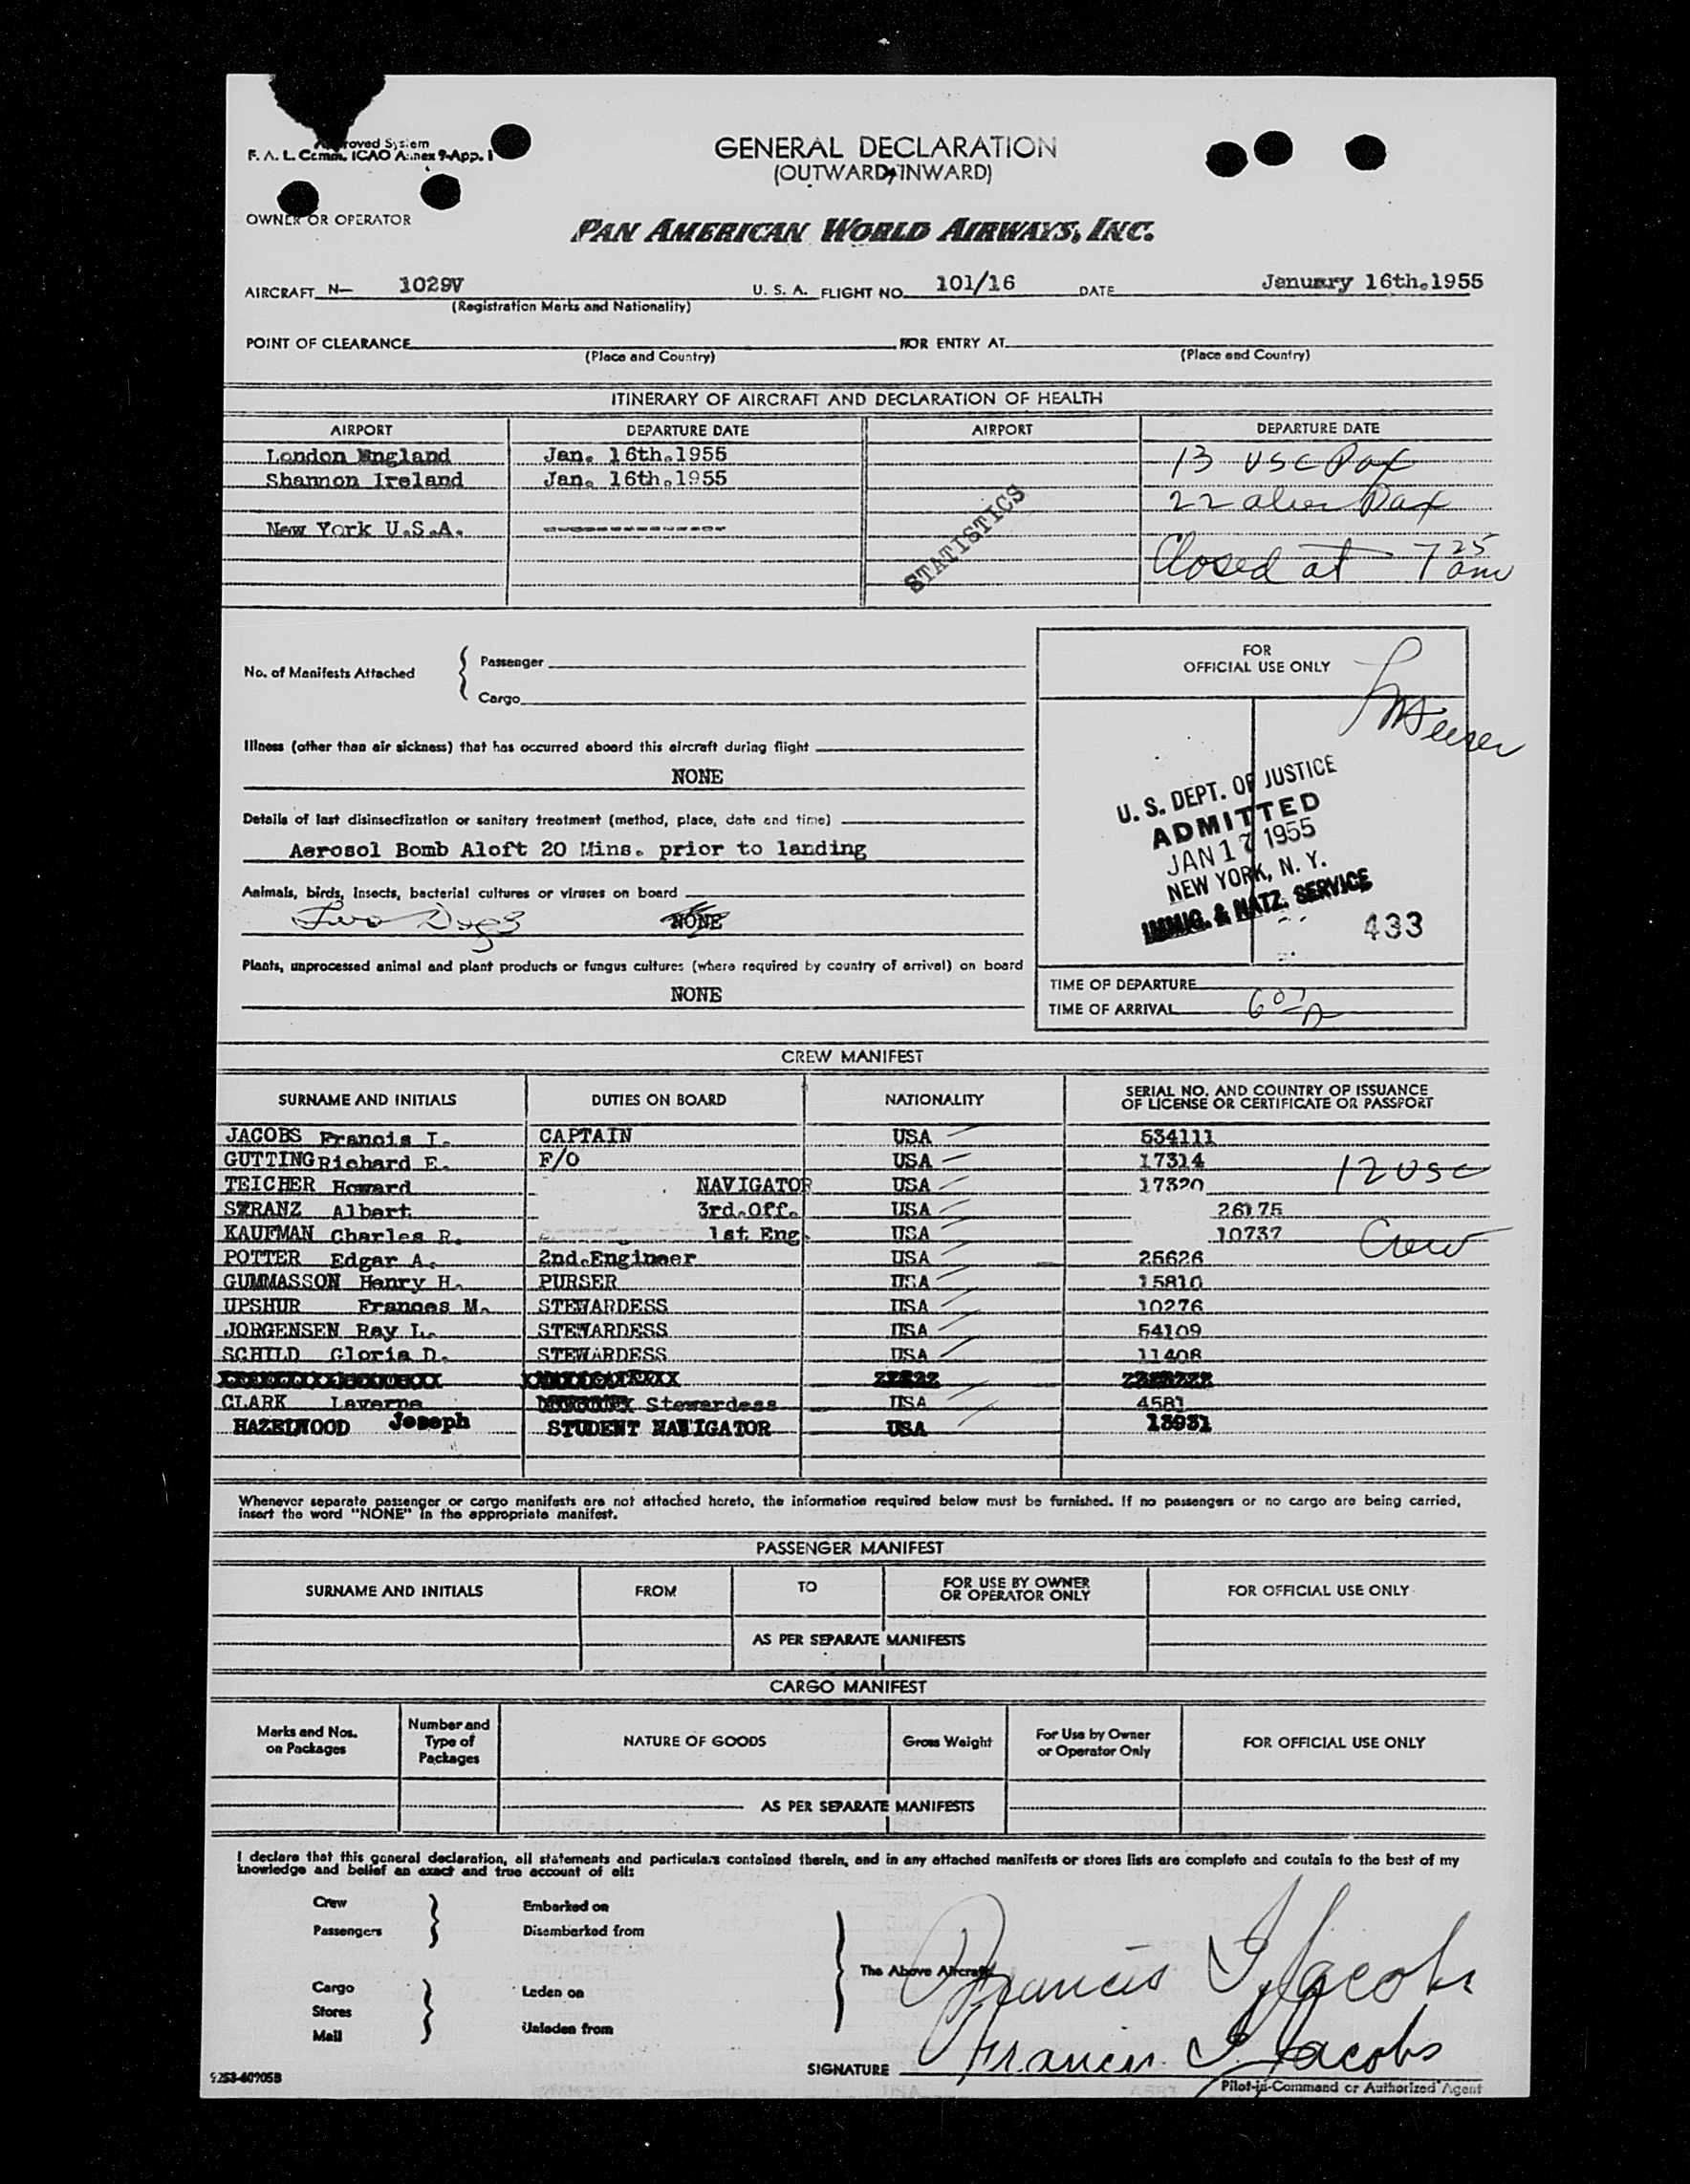 Approved System
F. A. L. Comm. ICAO Annex 9-App. 1
GENERAL DECLARATION
(OUTWARD/INWARD)
OWNER OR OPERATOR
PAN AMERICAN WORLD AIRWAYS, INC.
AIRCRAFT N— 1029V U. S. A. FLIGHT NO. 101/16 DATE January 16th.1955
(Registration Marks and Nationality)
POINT OF CLEARANCE FOR ENTRY AT
(Place and Country) (Place and Country)
ITINERARY OF AIRCRAFT AND DECLARATION OF HEALTH
AIRPORT DEPARTURE DATE AIRPORT DEPARTURE DATE
London England Jan. 16th.1955 13 USC Pax
Shannon Ireland Jan. 16th.1955
22 alien Pax
New York U.S.A. -------------
STATISTICS
Closed at 7 25 am
FOR
OFFICIAL USE ONLY
No. of Manifests Attached { Passenger
Cargo
Illness (other than air sickness) that has occurred aboard this aircraft during flight
NONE
Details of last disinsectization or sanitary treatment (method, place, date and time)
Aerosol Bomb Aloft 20 Mins. prior to landing
Animals, birds, insects, bacterial cultures or viruses on board
Two Dogs NONE
Plants, unprocessed animal and plant products or fungus cultures (where required by country of arrival) on board
NONE
U. S. DEPT. OF JUSTICE
ADMITTED
JAN 17 1955
NEW YORK, N. Y.
IMMIG. & NATZ. SERVICE
433
TIME OF DEPARTURE
TIME OF ARRIVAL
CREW MANIFEST
SURNAME AND INITIALS DUTIES ON BOARD NATIONALITY SERIAL NO. AND COUNTRY OF ISSUANCE
OF LICENSE OR CERTIFICATE OR PASSPORT
JACOBS Francis I. CAPTAIN USA 534111
GUTTING Richard E. F/O USA 17314
12 USC
TEICHER Howard NAVIGATOR USA 17320
Albert 3rd.Off. USA 26175
KAUFMAN Charles R. 1st Eng. USA 10737
Crew
POTTER Edgar A. 2nd.Engineer USA 25626
GUMMASSON Henry H. PURSER USA 15810
UPSHUR Frances M. STEWARDESS USA 10276
JORGENSEN Ray L. STEWARDESS USA 54109
SCHILD Gloria D. STEWARDESS USA 11408
CLARK Laverne Stewardess USA 4581
HAZELWOOD Joseph STUDENT NAVIGATOR USA 13931
Whenever separate passenger or cargo manifests are not attached hereto, the information required below must be furnished. If no passengers or no cargo are being carried,
insert the word "NONE" in the appropriate manifest.
PASSENGER MANIFEST
SURNAME AND INITIALS FROM TO FOR USE BY OWNER
OR OPERATOR ONLY FOR OFFICIAL USE ONLY
AS PER SEPARATE MANIFESTS
CARGO MANIFEST
Marks and Nos.
on Packages
Number and
Type of
Packages
NATURE OF GOODS
Gross Weight
For Use by Owner
or Operator Only
FOR OFFICIAL USE ONLY
AS PER SEPARATE MANIFESTS
I declare that this general declaration, all statements and particulars contained therein, and in any attached manifests or stores lists are complete and contain to the best of my
knowledge and belief an exact and true account of all:
Crew Embarked on
Passengers Disembarked from
The Above Aircraft
Francis I Jacobs
Cargo Laden on
Stores
Mail Unladen from
SIGNATURE Francis I Jacobs
Pilot-in-Command or Authorized Agent
9253-60905B